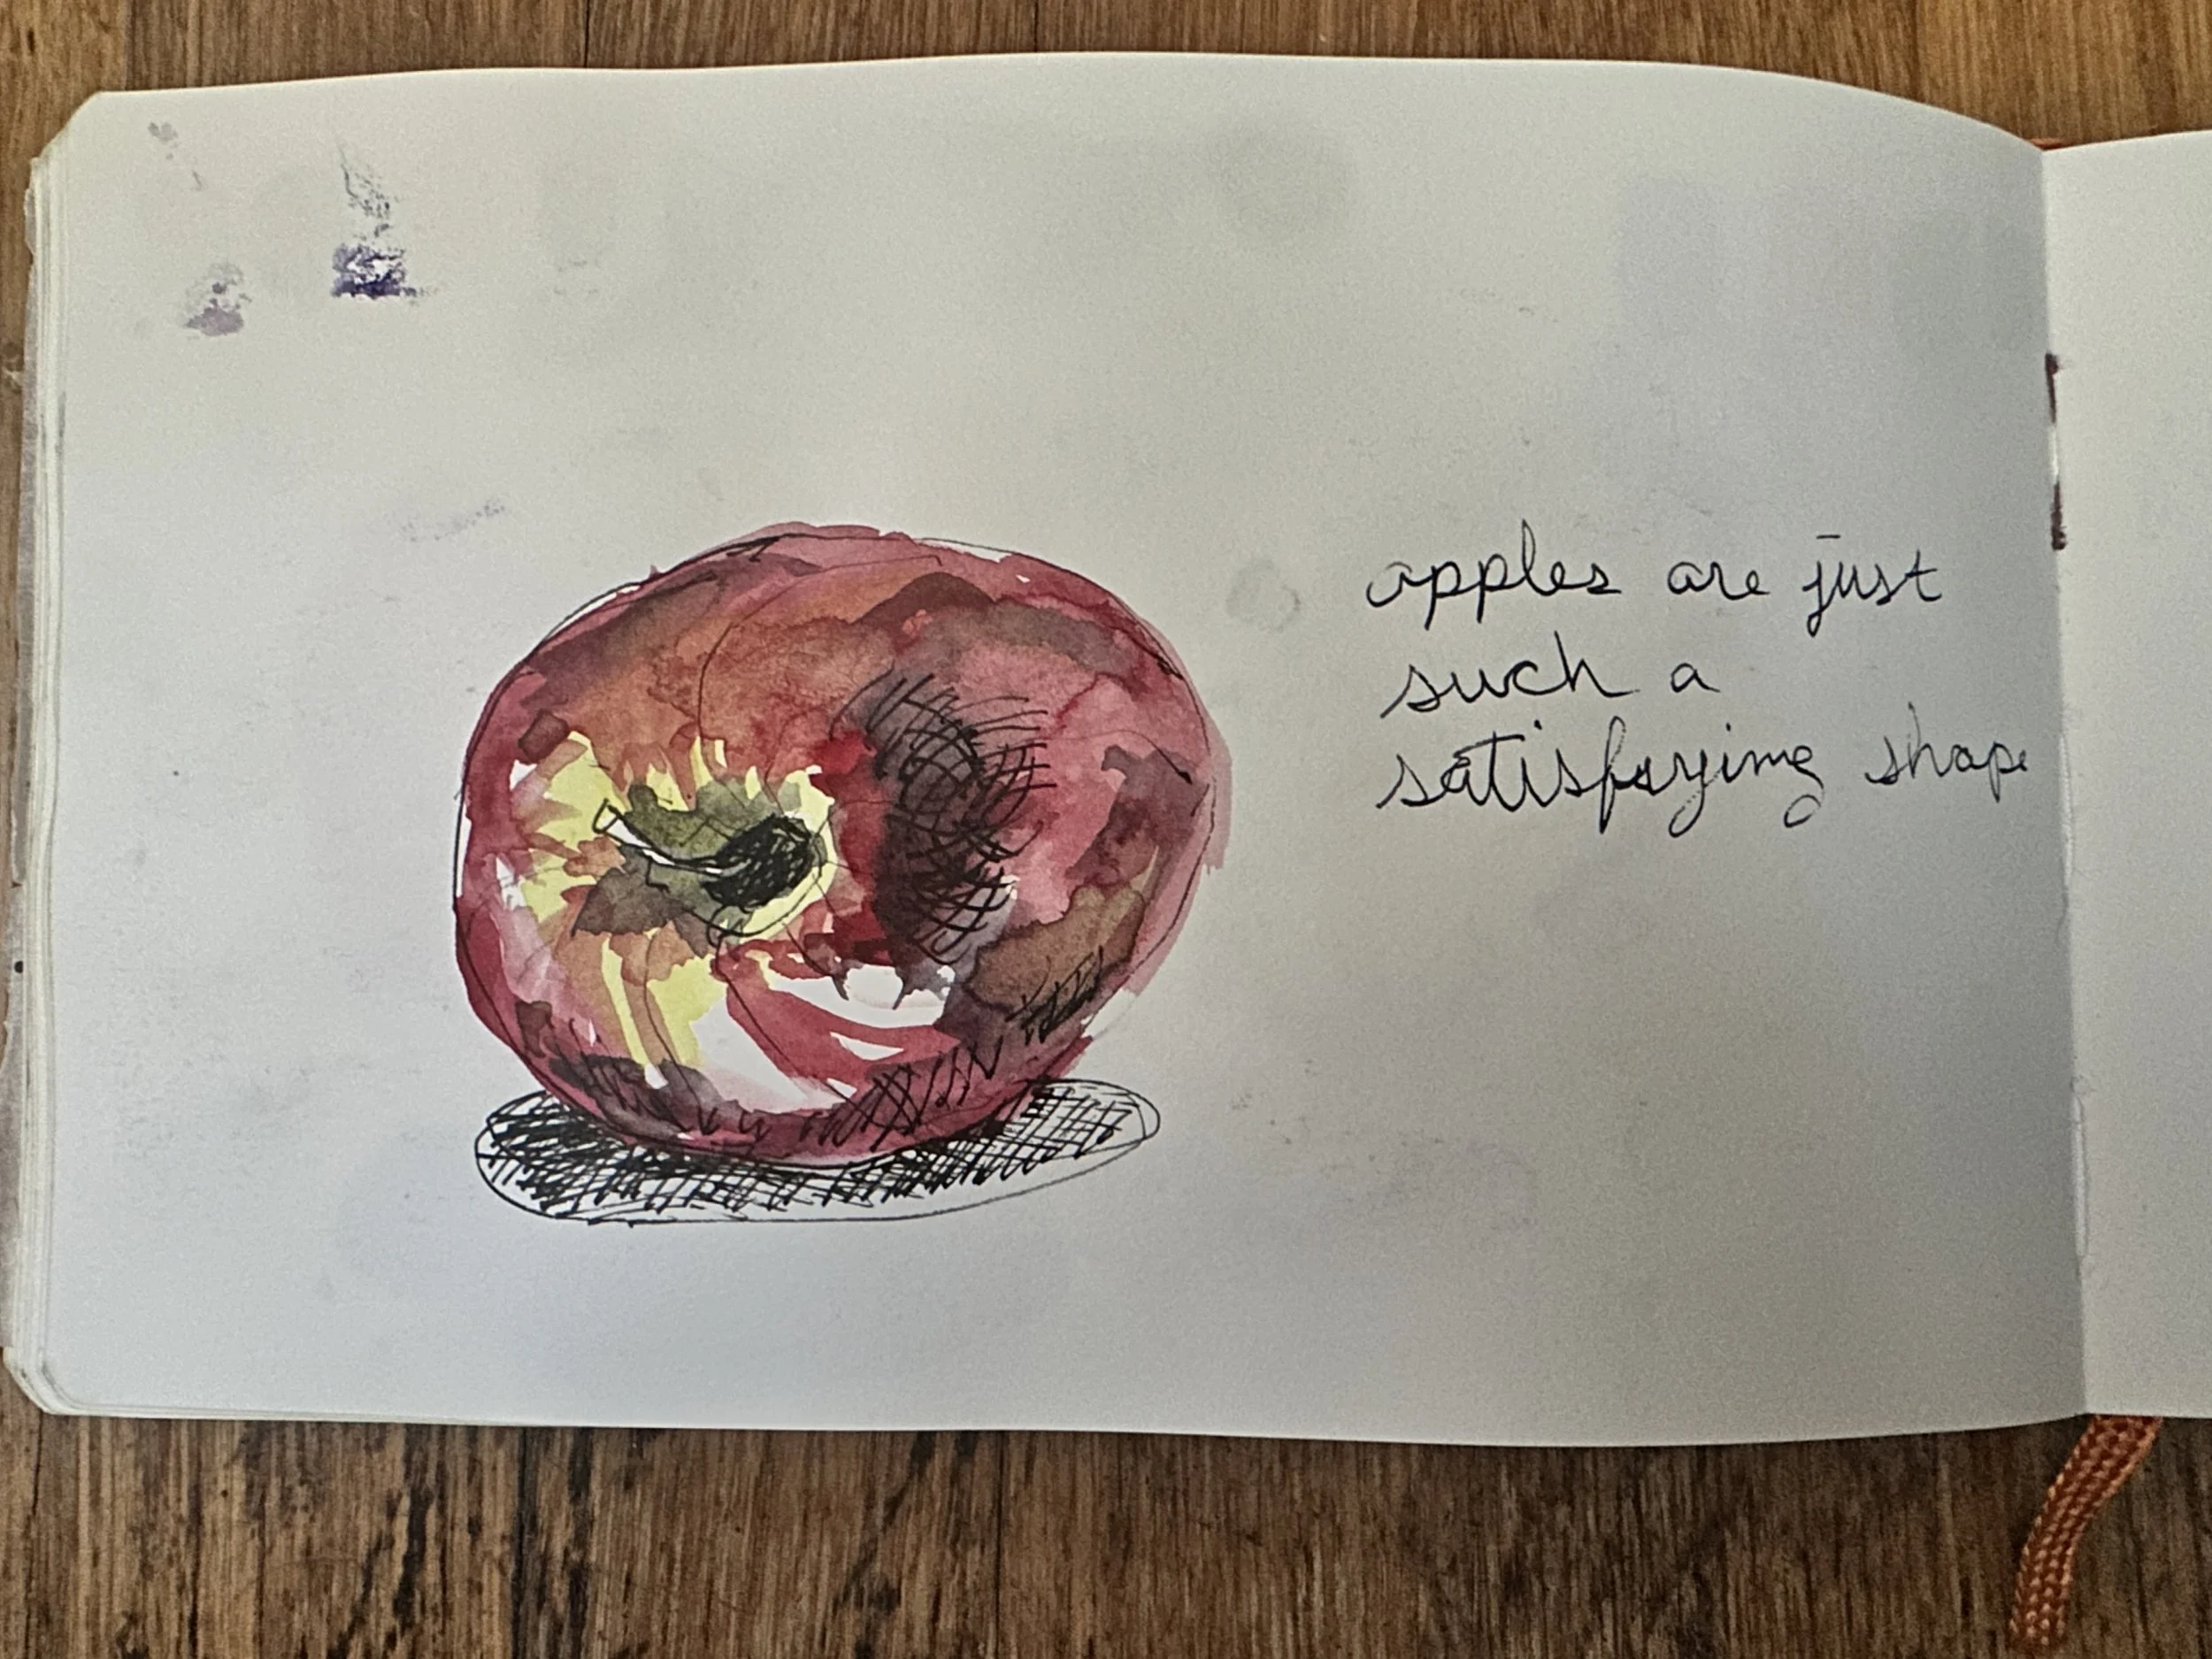 apples are just
such a
satisfying shape